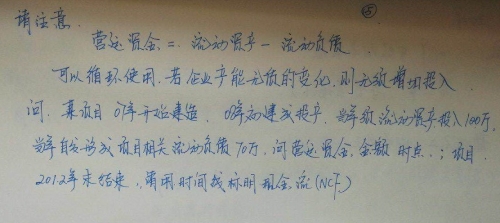 请注意. ⑤
营运资金 = 流动资产 - 流动负债
可以循环使用.若企业产能无质的变化,则无须增加投入
问.某项目 07年开始建造. 08年初建成投产,当年需流动资产投入100万,
当年自发形成项目相关流动负债70万.问营运资金.金额 时点.;项目
2012年末结束,请用时间坐标明现金流(NCF.)